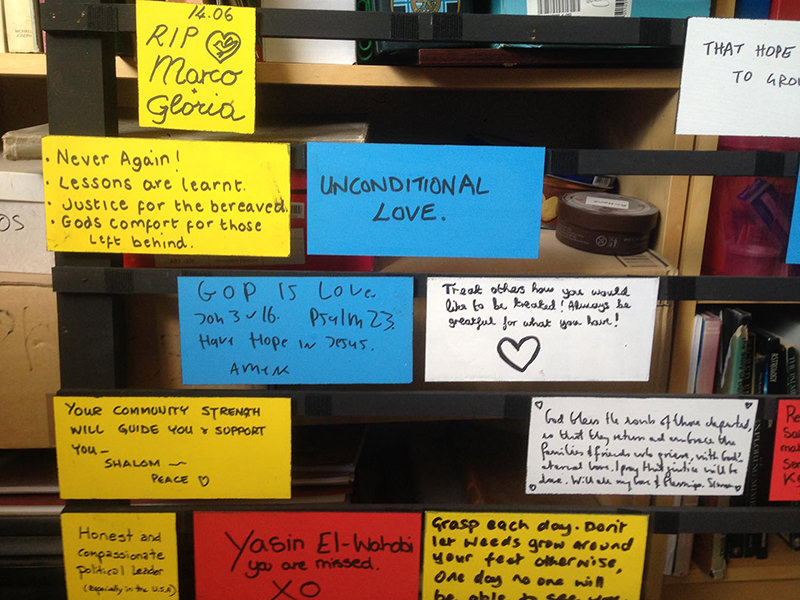 14.06
RIP
Marco
+
Gloria
THAT HOPE
TO GRO
• Never Again!
• Lessons are learnt.
• Justice for the bereaved.
• Gods comfort for those
left behind.
UNCONDITIONAL
LOVE.
OS
GOD IS Love.
Joh 3 v 16. Psalm 23.
Have Hope in Jesus.
AMEN
Treat others how you would
like to be treated! Always be
greatful for what you have!
YOUR COMMUNITY STRENGTH
WILL GUIDE YOU & SUPPORT
YOU –
SHALOM ~
PEACE ♡
God bless the souls of those departed,
so that they return and embrace the
families & friends who grieve, with God's
eternal love. I pray that justice will be
done. With all my love & blessings. Simon
ASTROLOGY
Honest and
compassionate
political leader
(especially in the U.S.A)
Yasin El-Wahabi
you are missed.
XO
Grasp each day. Don't
let weeds grow around
your feet otherwise,
One day no one will
be able to see you.